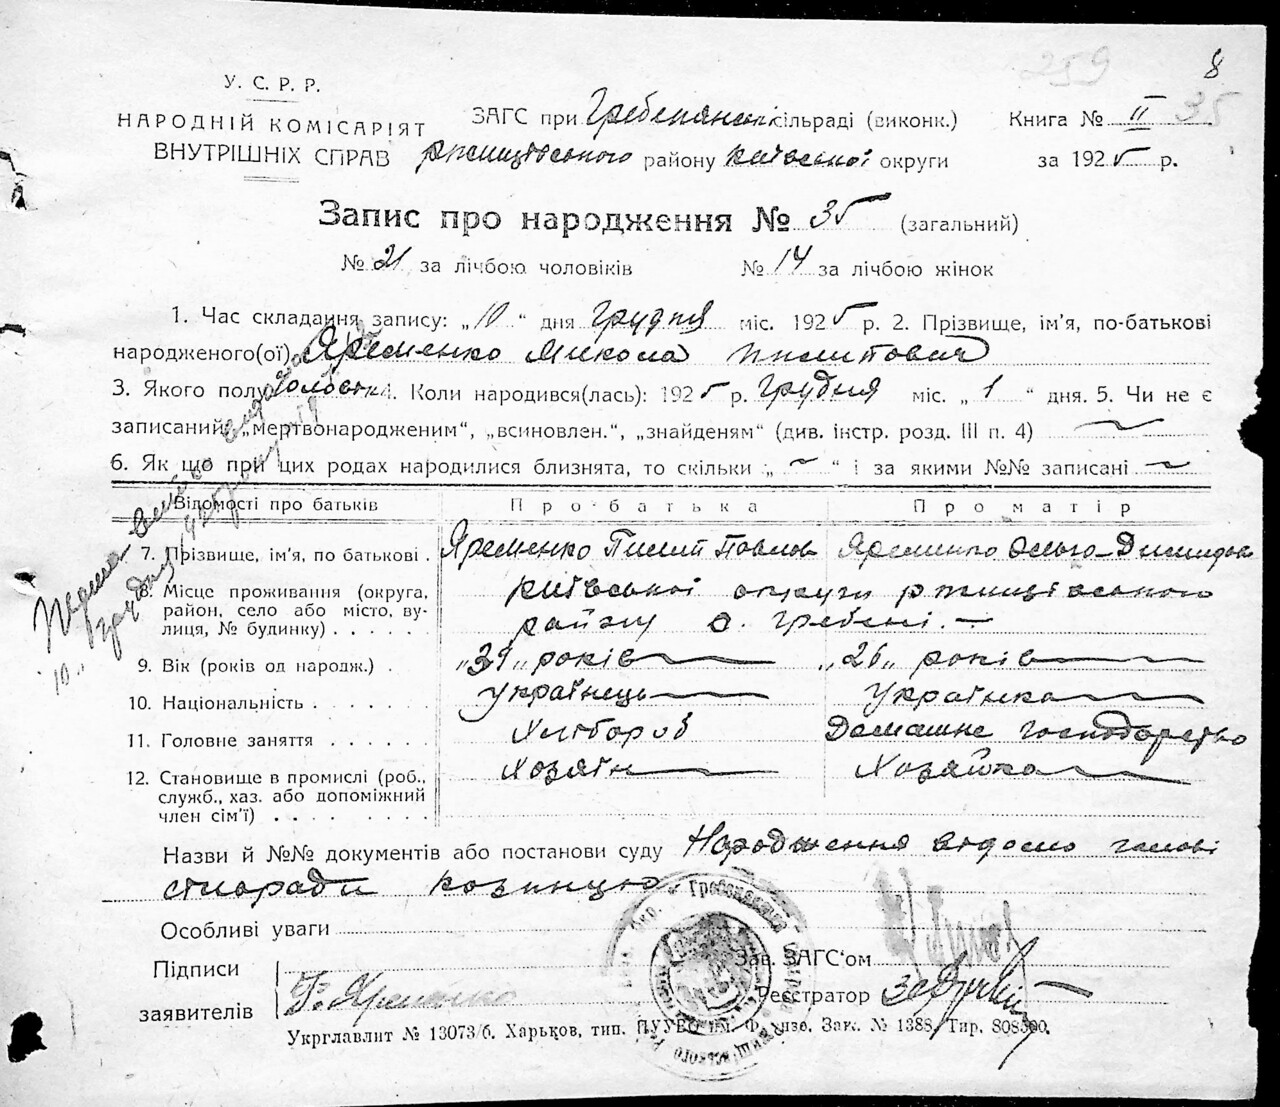 259
8
У. С. Р. Р.
НАРОДНІЙ КОМІСАРІЯТ
ВНУТРІШНІХ СПРАВ
ЗАГС при Гребенянській сільраді (виконк.) Книга № II 35
ржищівського району київської округи за 1925 р.
Запис про народження № 35 (загальний)
№ 21 за лічбою чоловіків № 14 за лічбою жінок
1. Час складання запису: „10“ дня грудня міс. 1925 р. 2. Прізвище, ім'я, по-батькові
народженого(ої) Яременко Микола Пилипович
3. Якого полу чоловічі. Коли народився(лась): 1925 р. грудня міс. „1“ дня. 5. Чи не є
записаний: „мертвонародженим“, „всиновлен.“, „знайденям“ (див. інстр. розд. III п. 4) ~
6. Як що при цих родах народилися близнята, то скільки „~“ і за якими №№ записані ~
Відомості про батьків Про батька Про матір
7. Прізвище, ім'я, по батькові Яременко Пилип Павлов Яременко Ольга
8. Місце проживання (округа, район, село або місто, вулиця, № будинку) . . . . . . київської округи ржищівського
району с. Гребені. —
9. Вік (років од народж.) . „39„ років „26„ років
10. Національність . . . . . . . українець українка
11. Головне заняття . . . . . . Хлібороб Домашнє господарство
12. Становище в промислі (роб., служб., хаз. або допоміжний член сім'ї) . . . . . . . . . Хозяїн Хозяйка
Назви й №№ документів або постанови суду Народження відомо голові
сільради козинцю
Особливі уваги
Підписи
заявителів
Яременко
Зав. ЗАГС'ом
Реєстратор
Укрглавлит № 13073/б. Харьков, тип. Зак. № 1388. Тир. 808500.